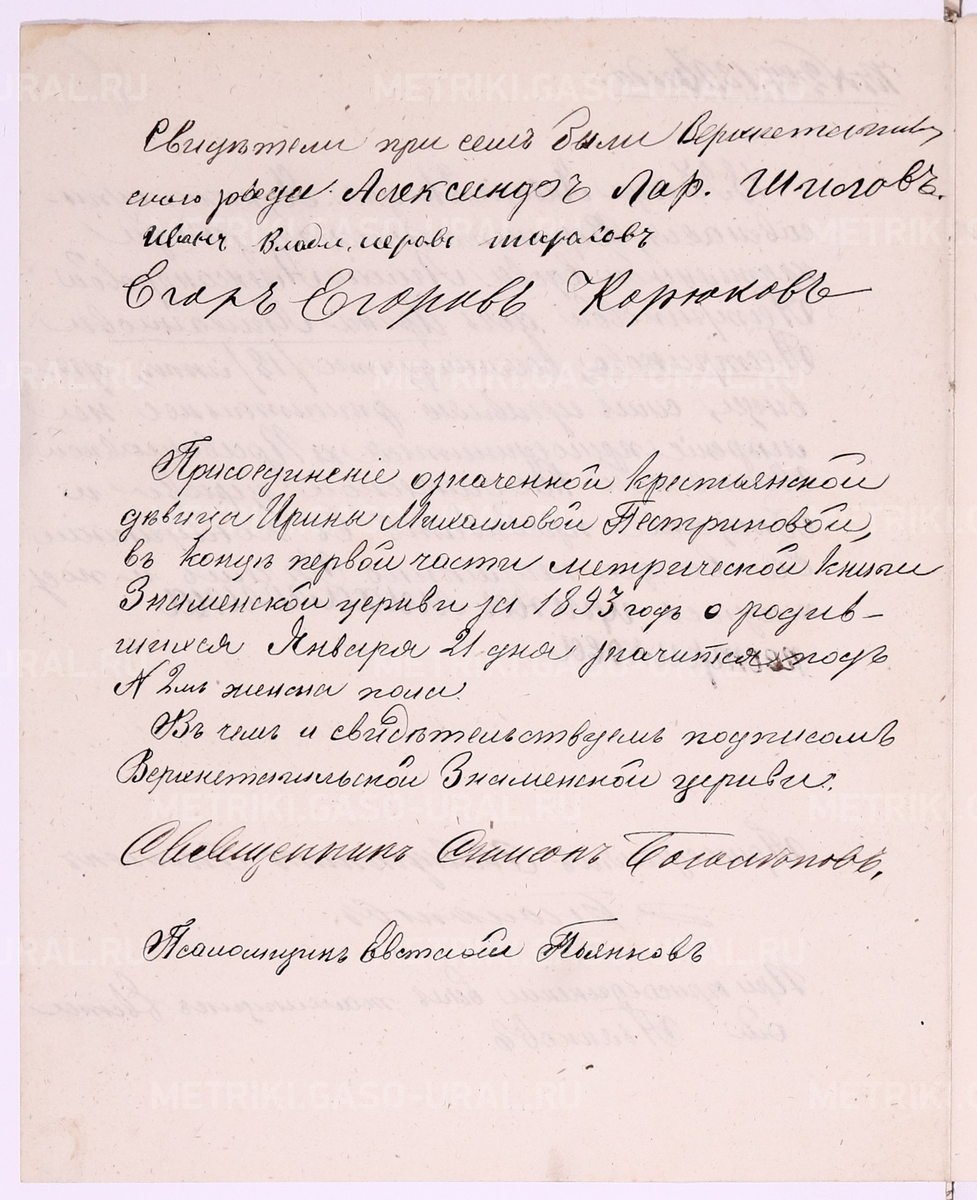 Свидѣтели при семъ были Верхнетагиль
скаго завода: Александръ Лар. Шиловъ.
Иванъ Владимеровъ тарасовъ
Егоръ Егоровъ Корюковъ
Присоединеніе означенной крестьянской
дѣвица Ирины Михаиловой Пестриковой,
въ концѣ первой части метрической книги
Знаменской церкви за 1893 годъ о родив-
шихся Января 21 дня значится подъ
№ 2мъ женска пола.
Въ чемъ и свидѣтельствуемъ подписомъ
Верхнетагильской Знаменской церкви:
Священникъ Симеонъ
Псаломщикъ Евстафій Пьянковъ
METRIKI.GASO-URAL.RU